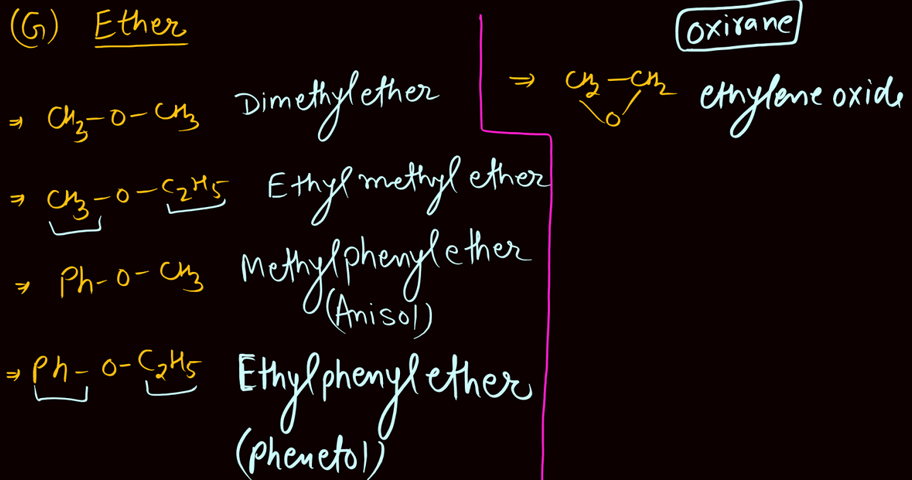 (G) Ether
⇒ CH3-O-CH3 Dimethylether
⇒ CH3-O-C2H5 Ethylmethylether
⇒ Ph-O-CH3 Methylphenylether
(Anisol)
⇒ Ph-O-C2H5 Ethylphenylether
(phenetol)
oxirane
⇒ CH2-CH2 ethylene oxide
O